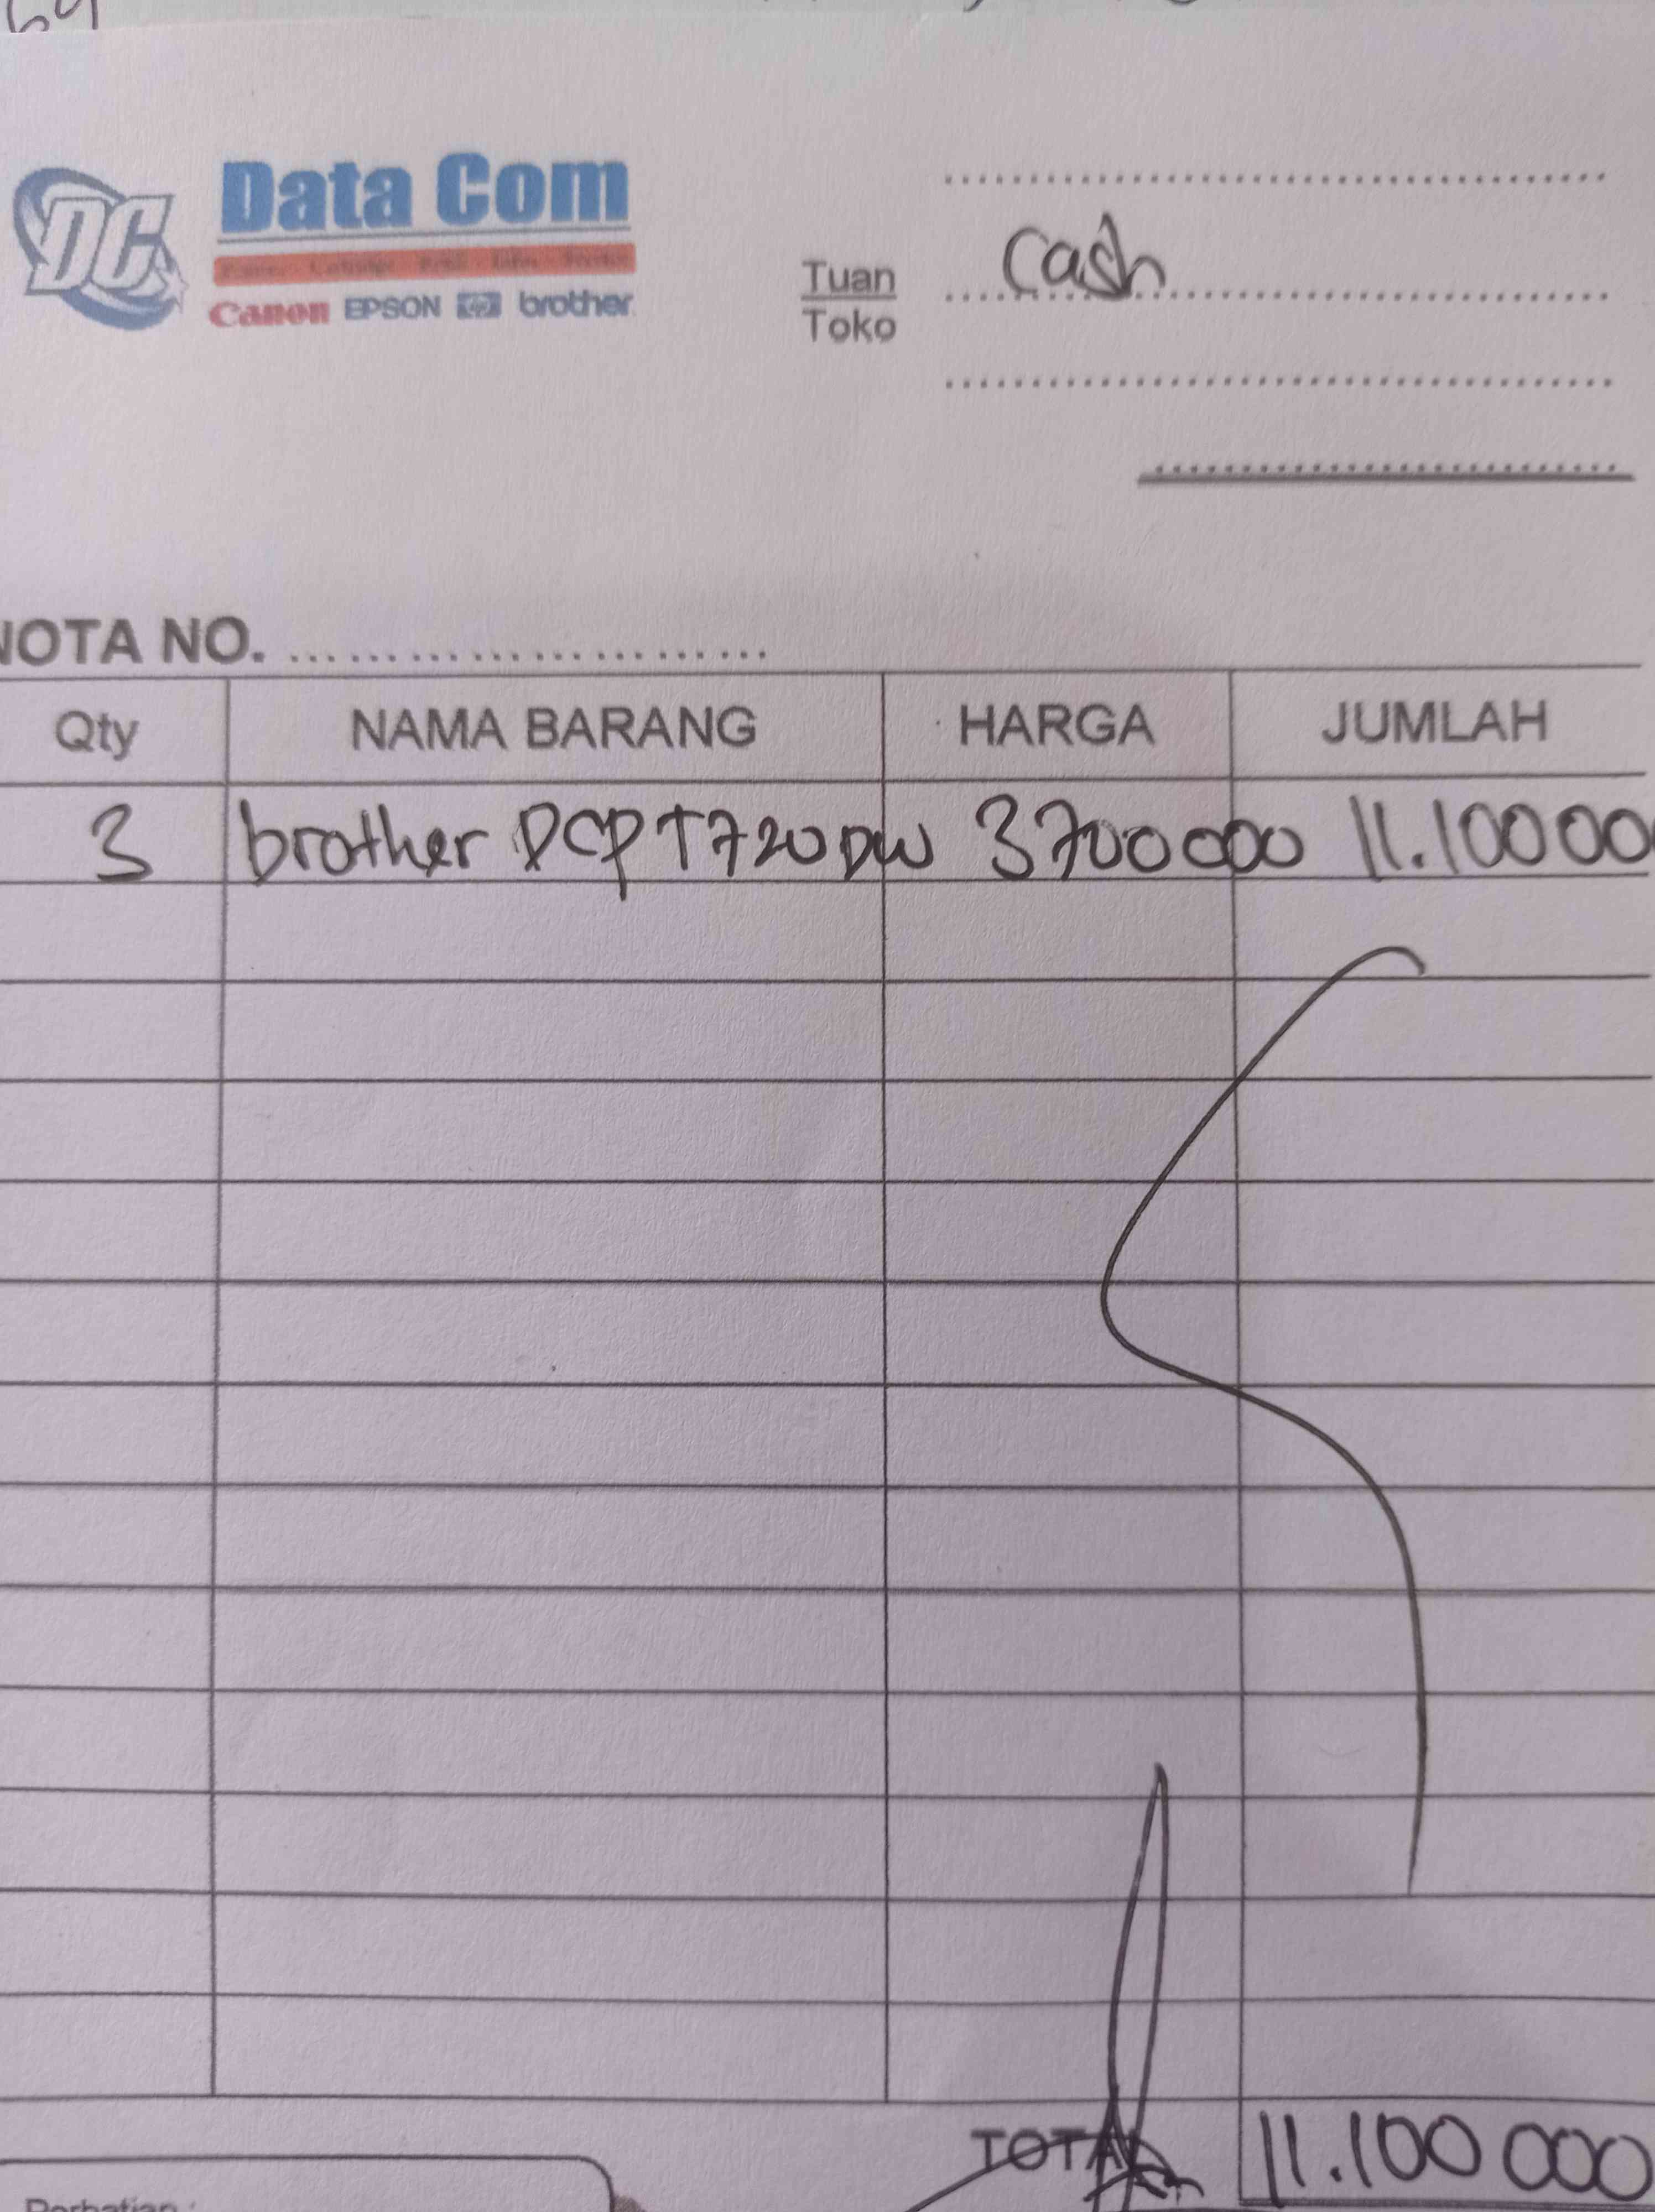 DC
Data Com
Canon EPSON hp brother
Tuan
Toko
Cash
NOTA NO.
Qty NAMA BARANG HARGA JUMLAH
3 brother DCP T720DW 3700000 11.10000
TOTAL 11.100 000
Perhatian :